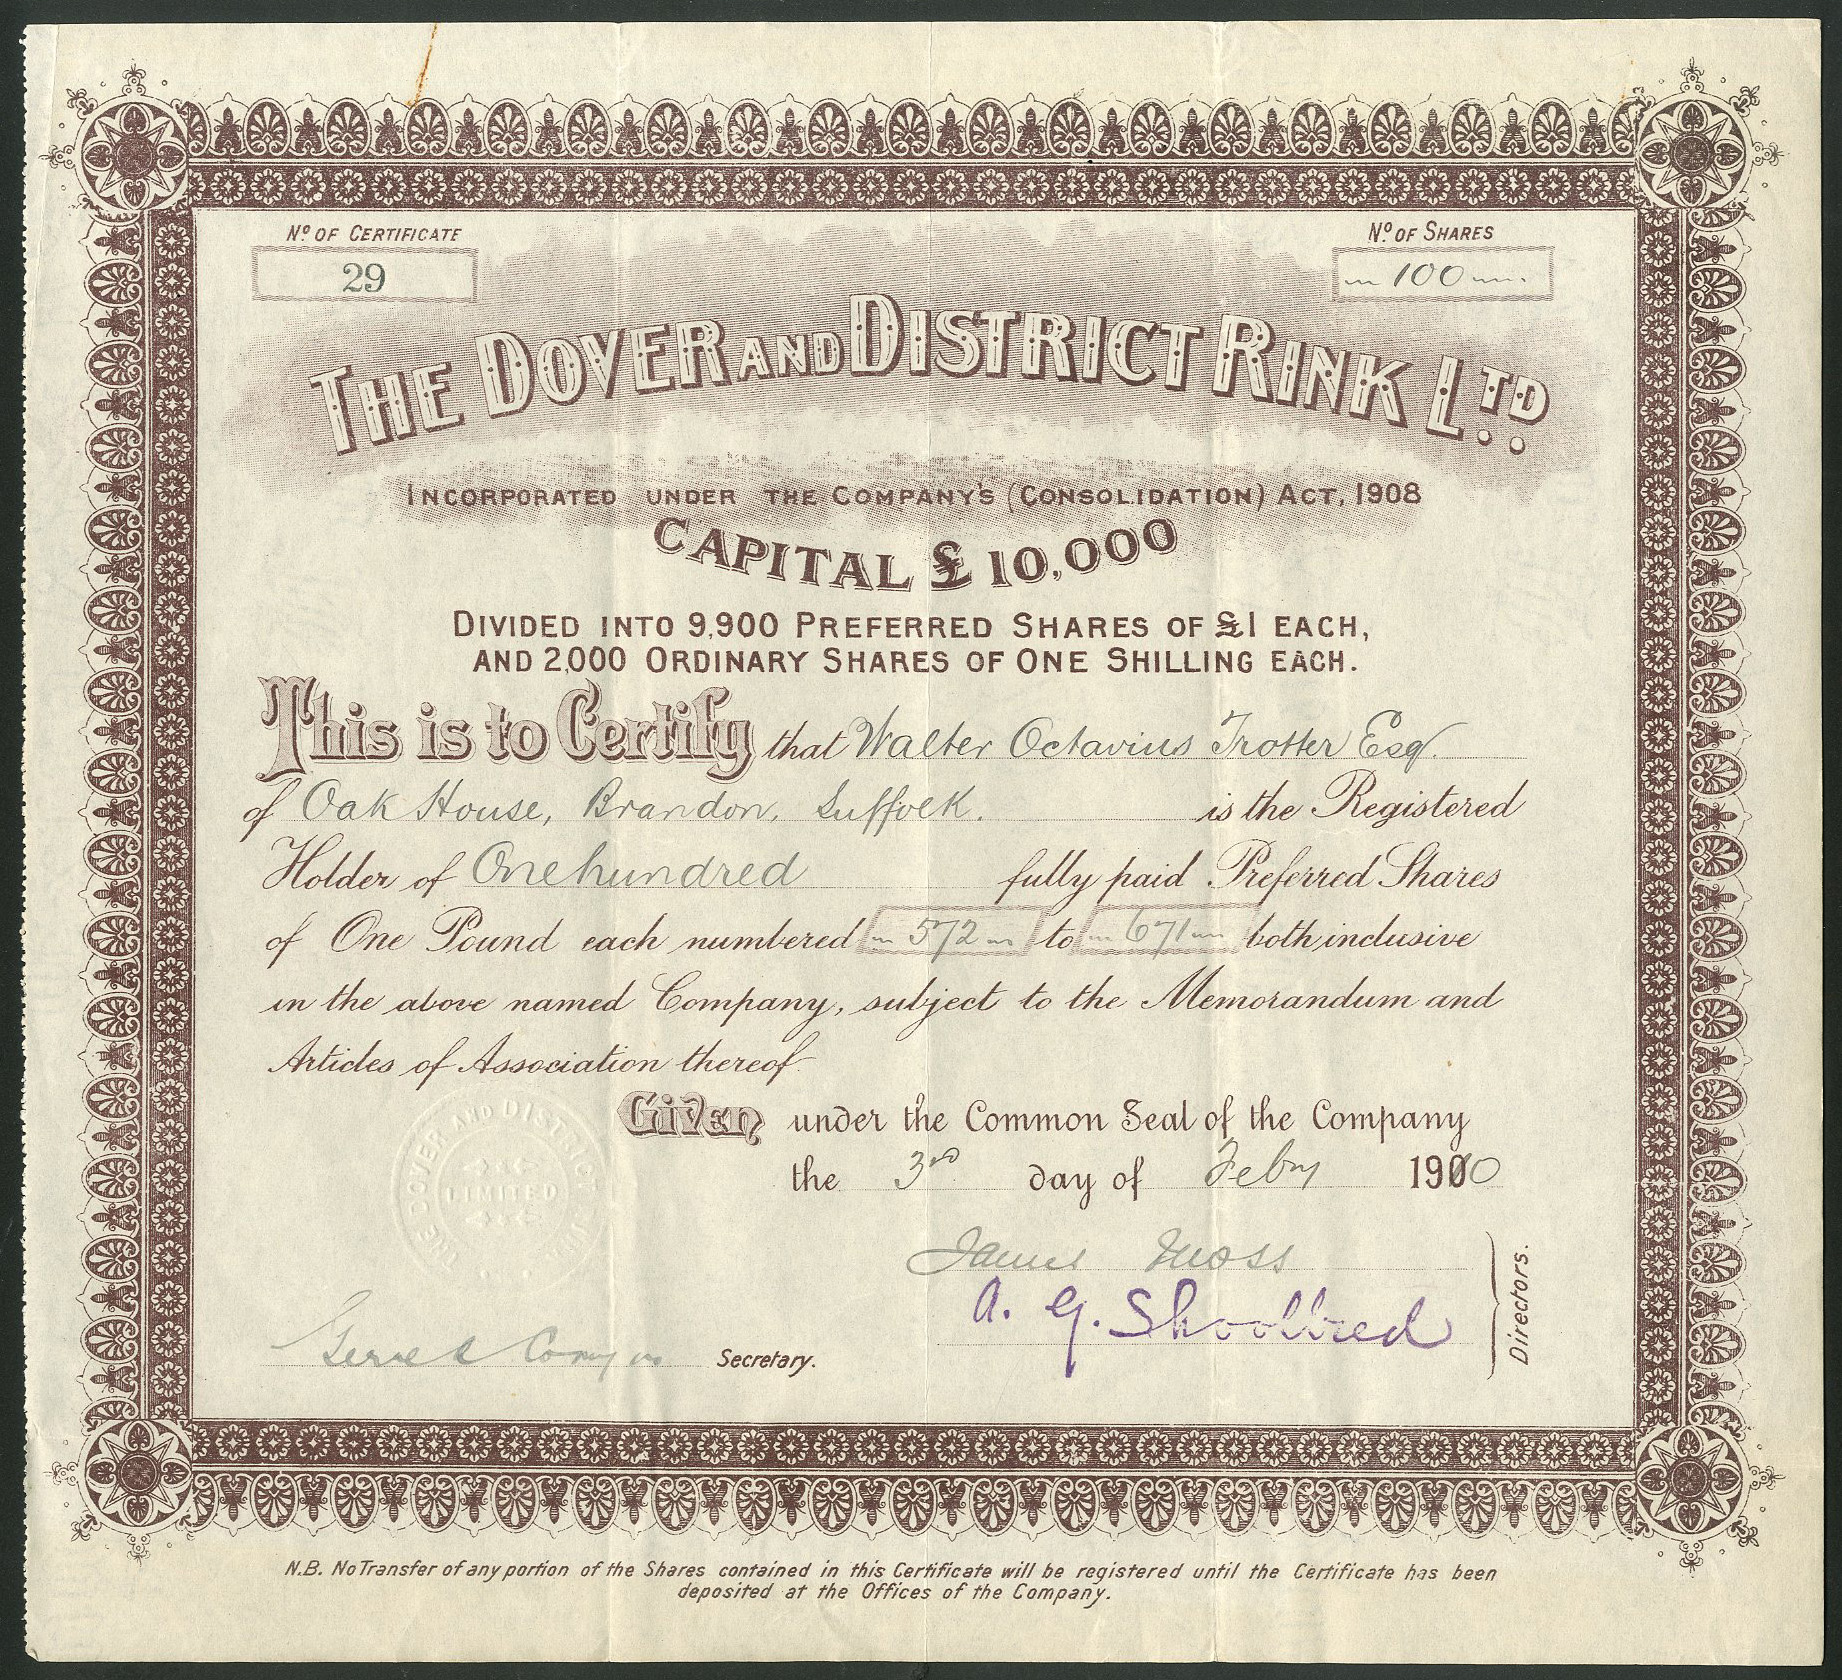 Nº OF CERTIFICATE
29
Nº OF SHARES
100
THE DOVER AND DISTRICT RINK LTD.
INCORPORATED UNDER THE COMPANY'S (CONSOLIDATION) ACT, 1908
CAPITAL £10,000
DIVIDED INTO 9,900 PREFERRED SHARES OF £1 EACH,
AND 2,000 ORDINARY SHARES OF ONE SHILLING EACH.
This is to Certify that Walter Octavius Trotter Esq.
of Oak House, Brandon, Suffolk. is the Registered
Holder of One hundred fully paid Preferred Shares
of One Pound each numbered 572 to 671 both inclusive
in the above named Company, subject to the Memorandum and
Articles of Association thereof.
Given under the Common Seal of the Company
the 3rd day of Feby 1910
THE DOVER AND DISTRICT RINK
LIMITED
James Moss
A. G. Shoolbred
Directors.
Secretary.
N.B. No Transfer of any portion of the Shares contained in this Certificate will be registered until the Certificate has been
deposited at the Offices of the Company.